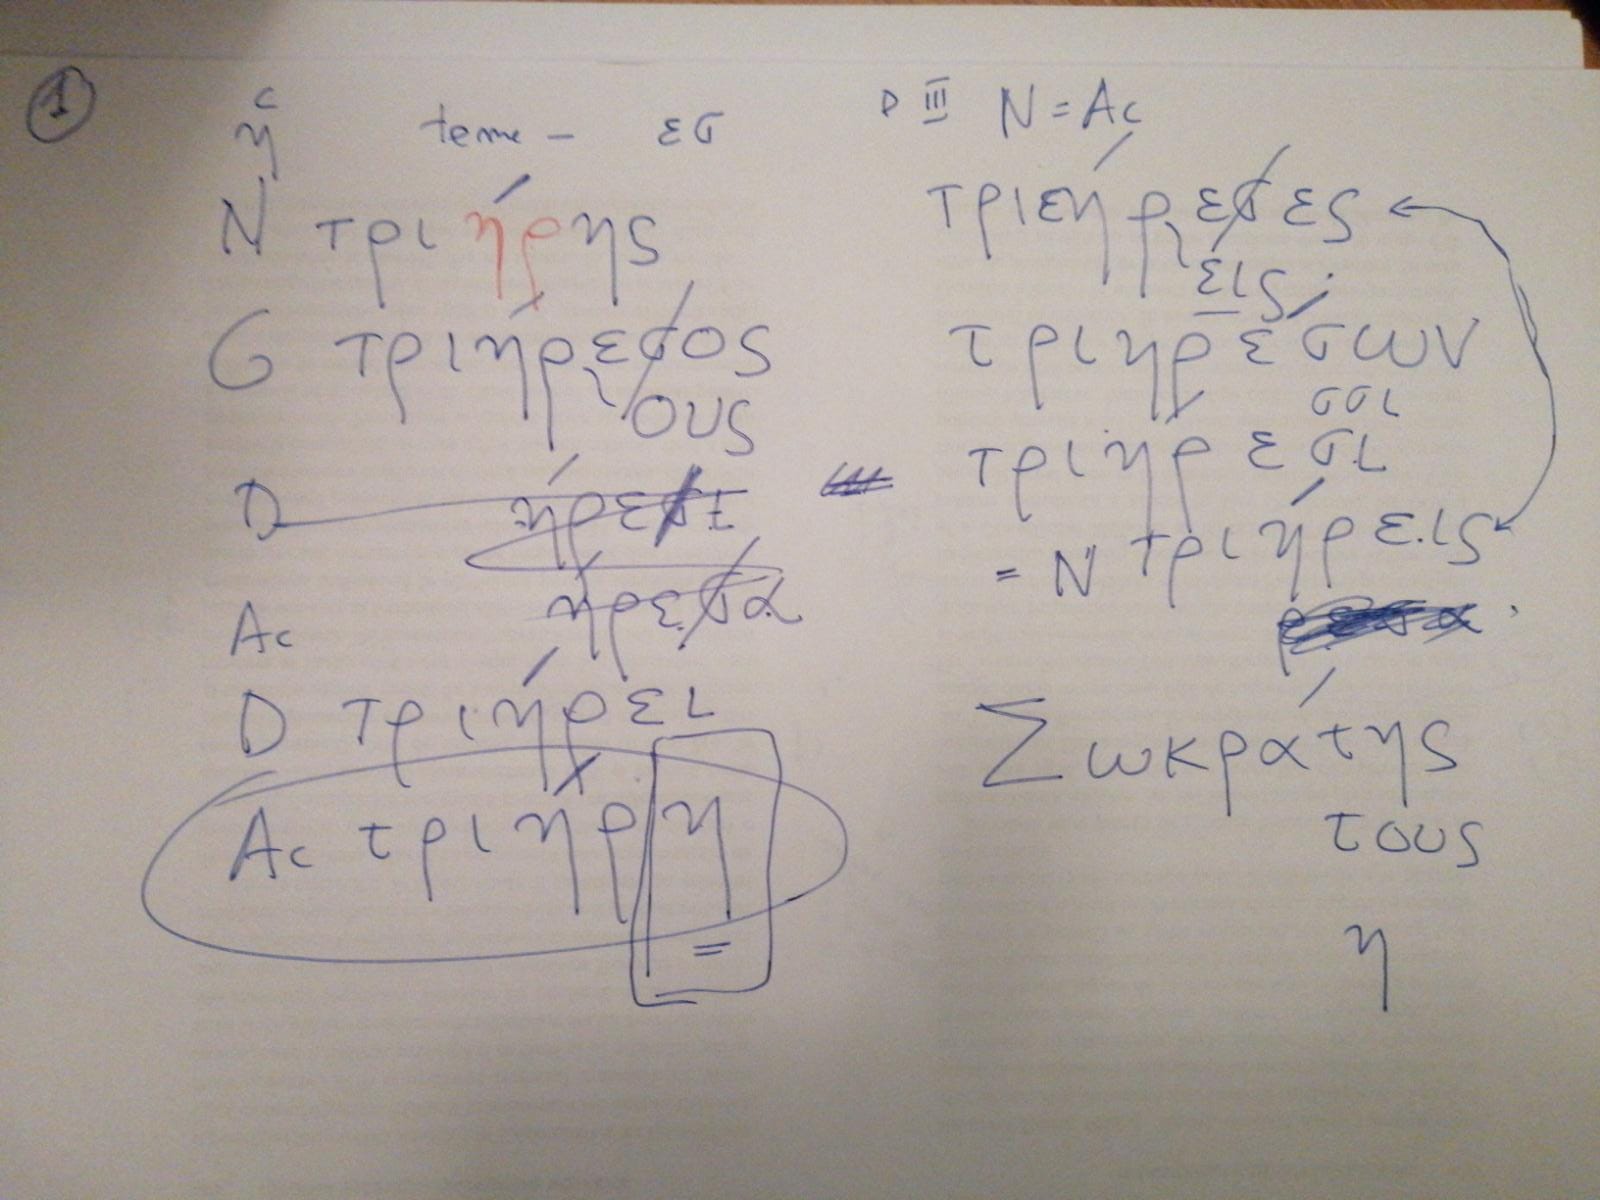 1
ἡ teme – εσ
N τριήρης
G τριήρεσος
ους
D ήρεσι
Ac ήρεσα
D τριήρει
Ac τριήρη
=
D III N = Ac
τριεήρεσες
εις
τριηρέσων
σσι
τριήρεσι
= N τριήρεις
ρεσα
Σωκράτης
τους
η